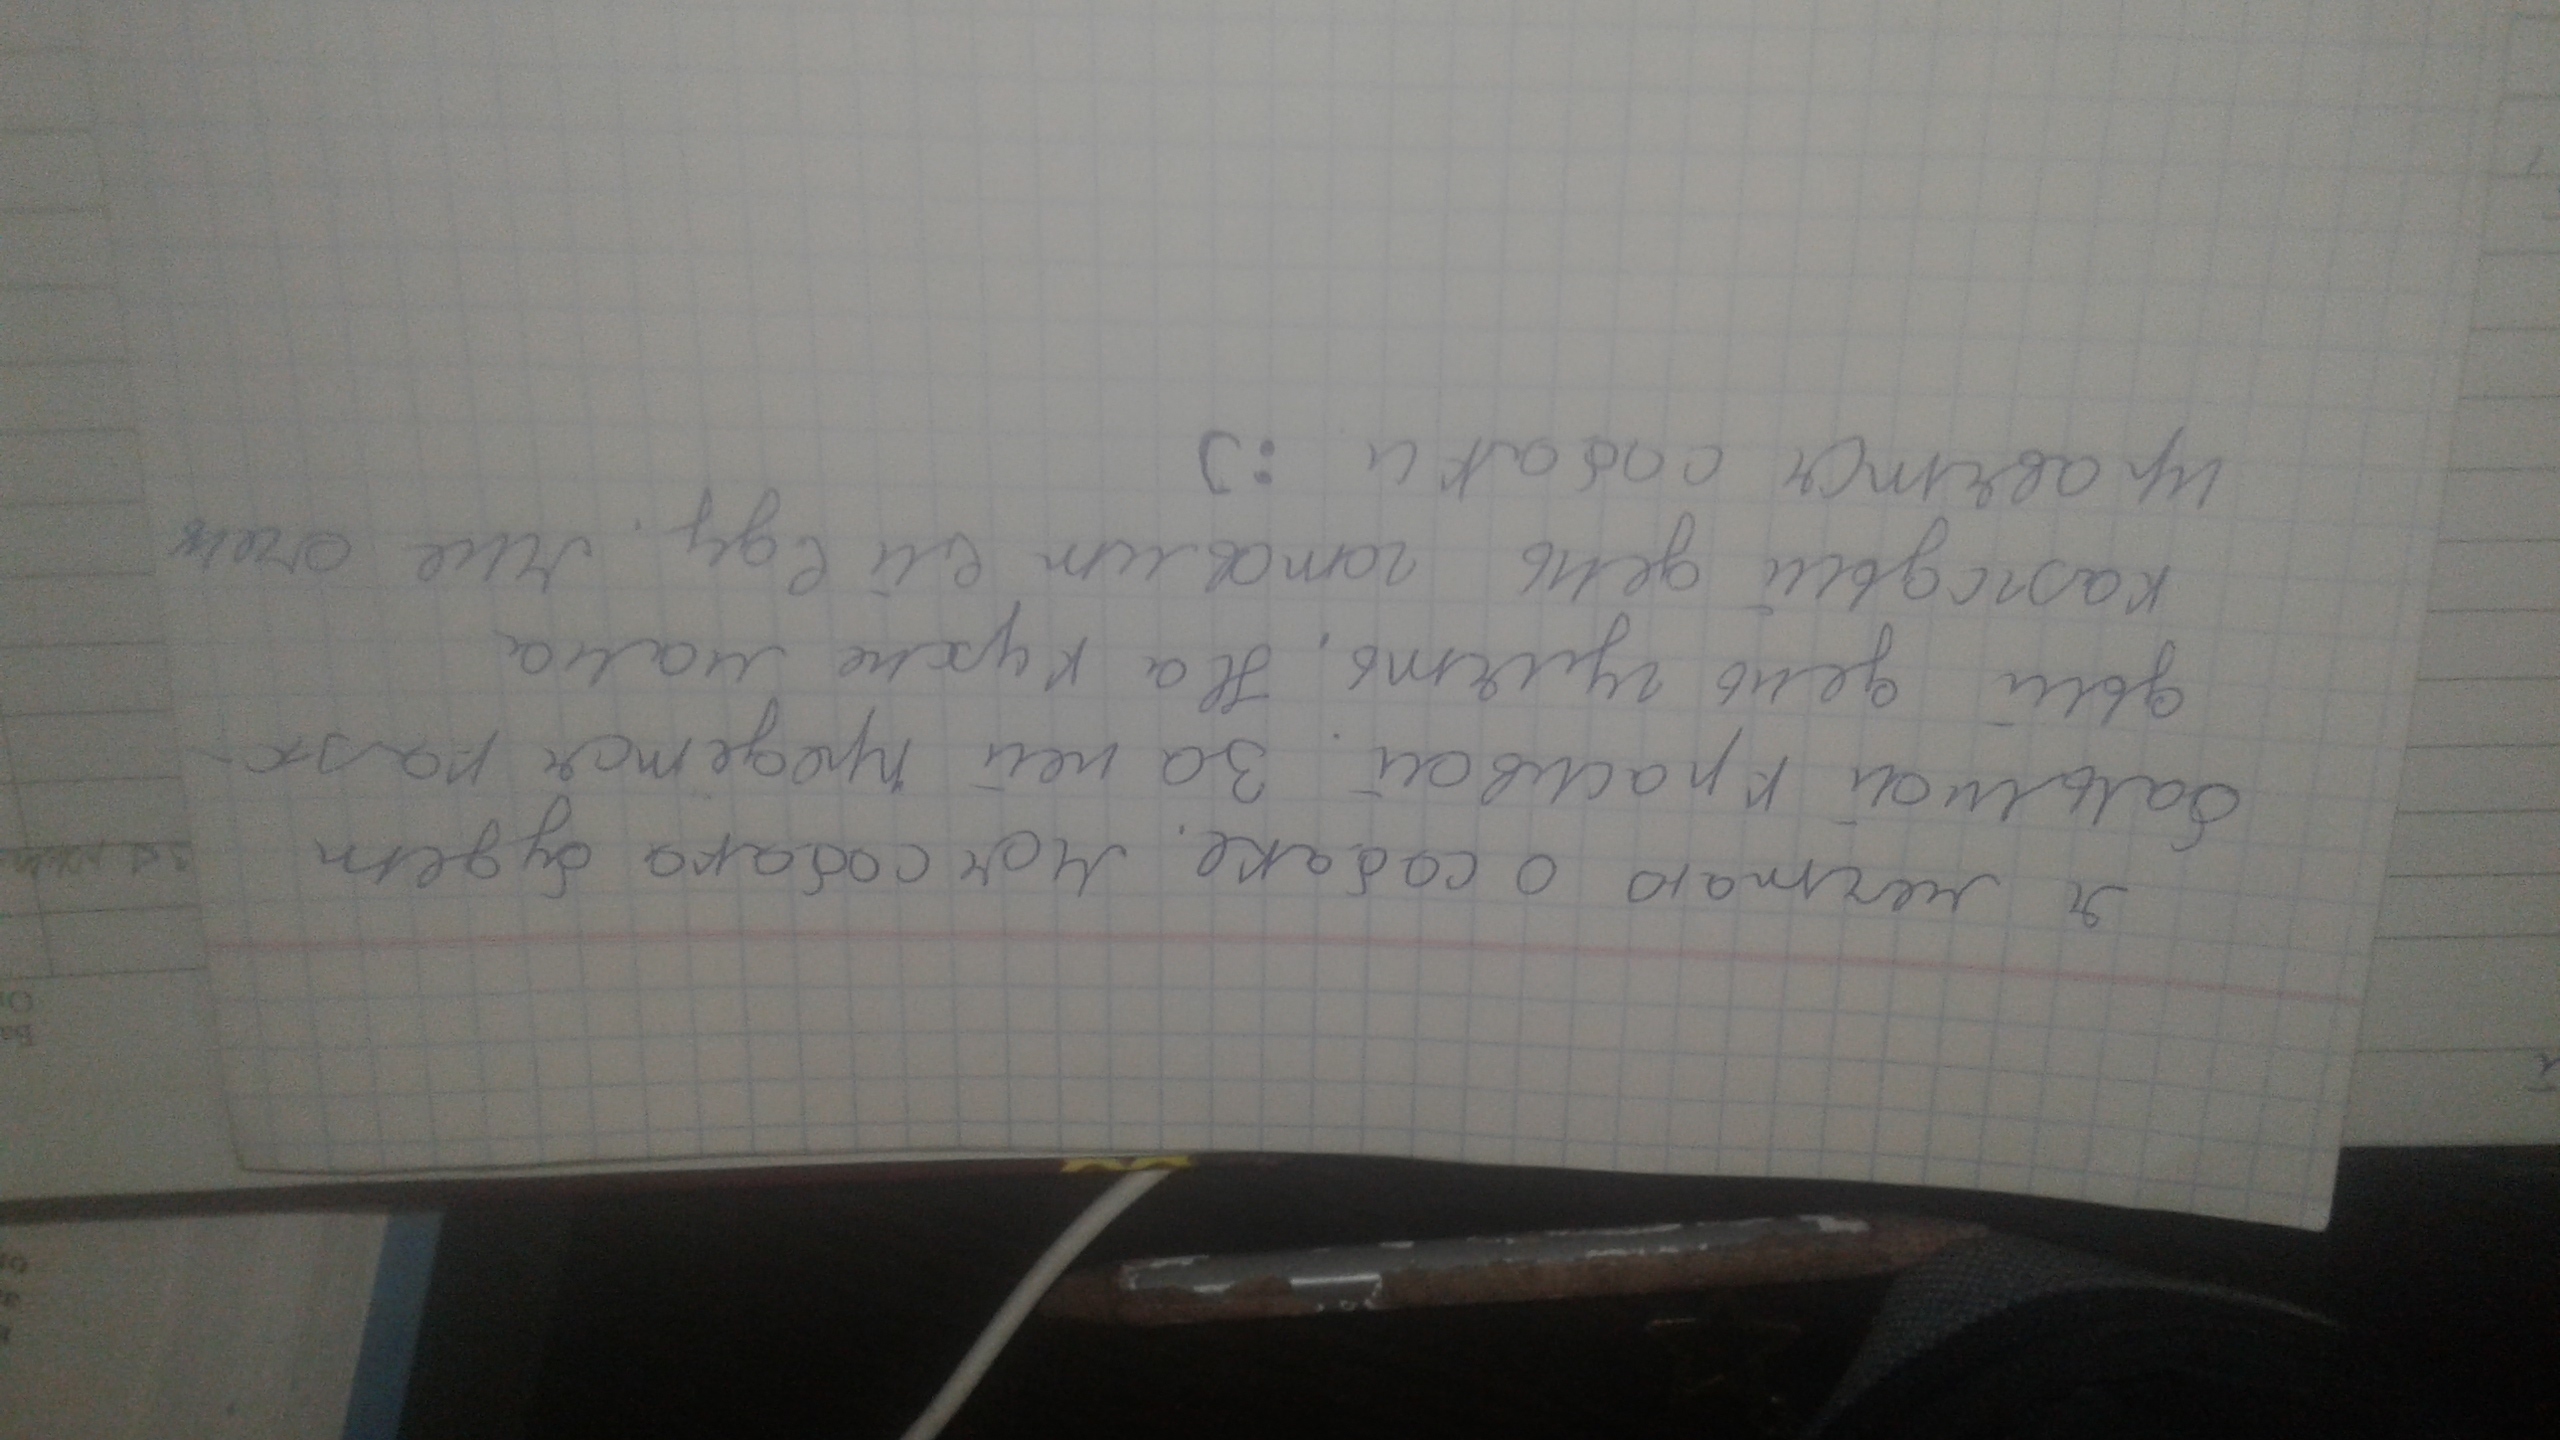 я мечтаю о собаке. Моя собака будет
большой красивой. За ней придется каж-
дый день гулять, На кухне мама
каждый день готовит ей еду. Мне очень
нравятся собаки :)